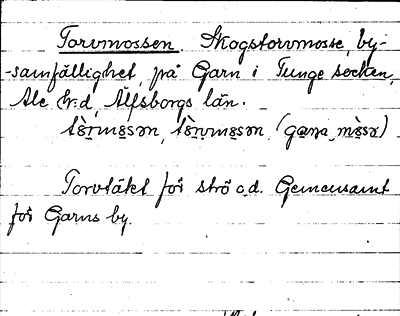 Torvmossen. Skogstorvmosse, by-
-samfällighet, på Garn i Tunge socken,
Ale h:d, Älfsborgs län.
Torvtäkt för strö o.d. Gemensamt
för Garns by.